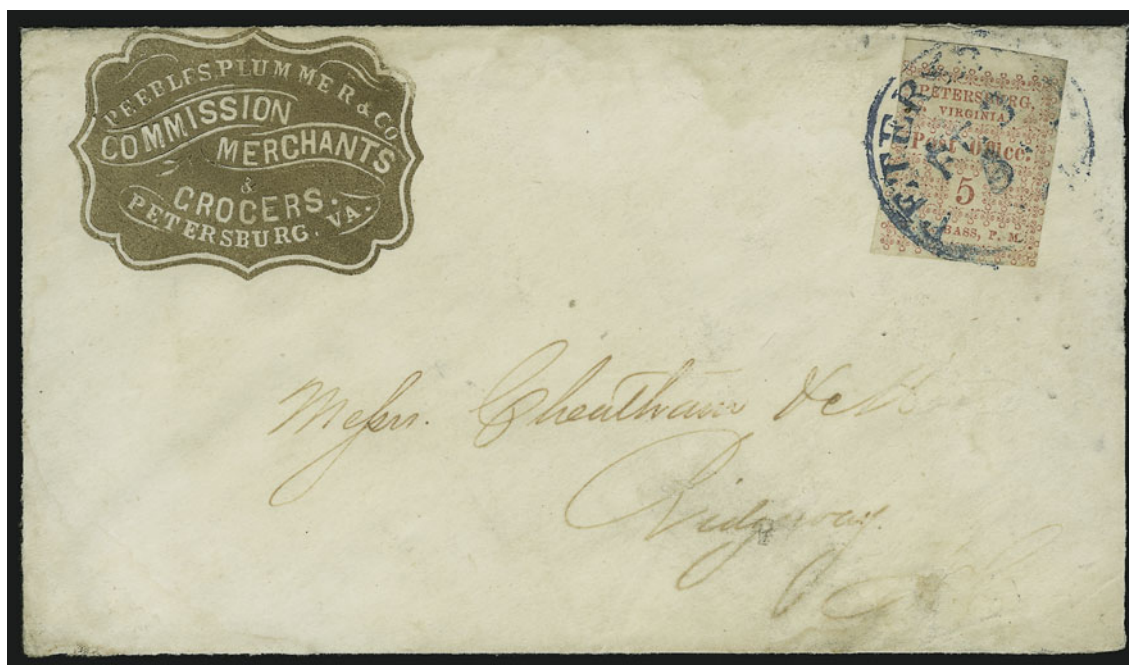 PEEBLES PLUMMER & CO
COMMISSION
MERCHANTS
&
GROCERS.
PETERSBURG. VA.
PETERSBURG,
VIRGINIA
Post Office.
5
BASS, P. M.
Messrs. Cheatham &
Ridgeway